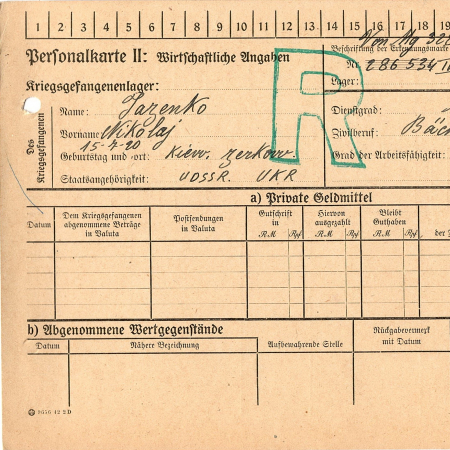 1 2 3 4 5 6 7 8 9 10 11 12 13 14 15 16 17 18 19
Personalkarte II: Wirtschaftliche Angaben
Beschriftung der Erkennungsmarke
Nr. 286 534
Kriegsgefangenenlager:
Lager:
Des Kriegsgefangenen
Name: Lazenko
Dienstgrad:
Vorname: Nikolaj
Zivilberuf: Bäc
15-7-20
Geburtstag und -ort: Kiew.
Grad der Arbeitsfähigkeit:
Staatsangehörigkeit: UDSSR. UKR
R
a) Private Geldmittel
Datum
Dem Kriegsgefangenen abgenommene Beträge in Valuta
Postsendungen in Valuta
Gutschrift in
Hiervon ausgezahlt
Bleibt Guthaben
RM Rpf RM Rpf RM Rpf
b) Abgenommene Wertgegenstände
Datum
Nähere Bezeichnung
Aufbewahrende Stelle
Rückgabevermerk mit Datum
2656 42 2 D